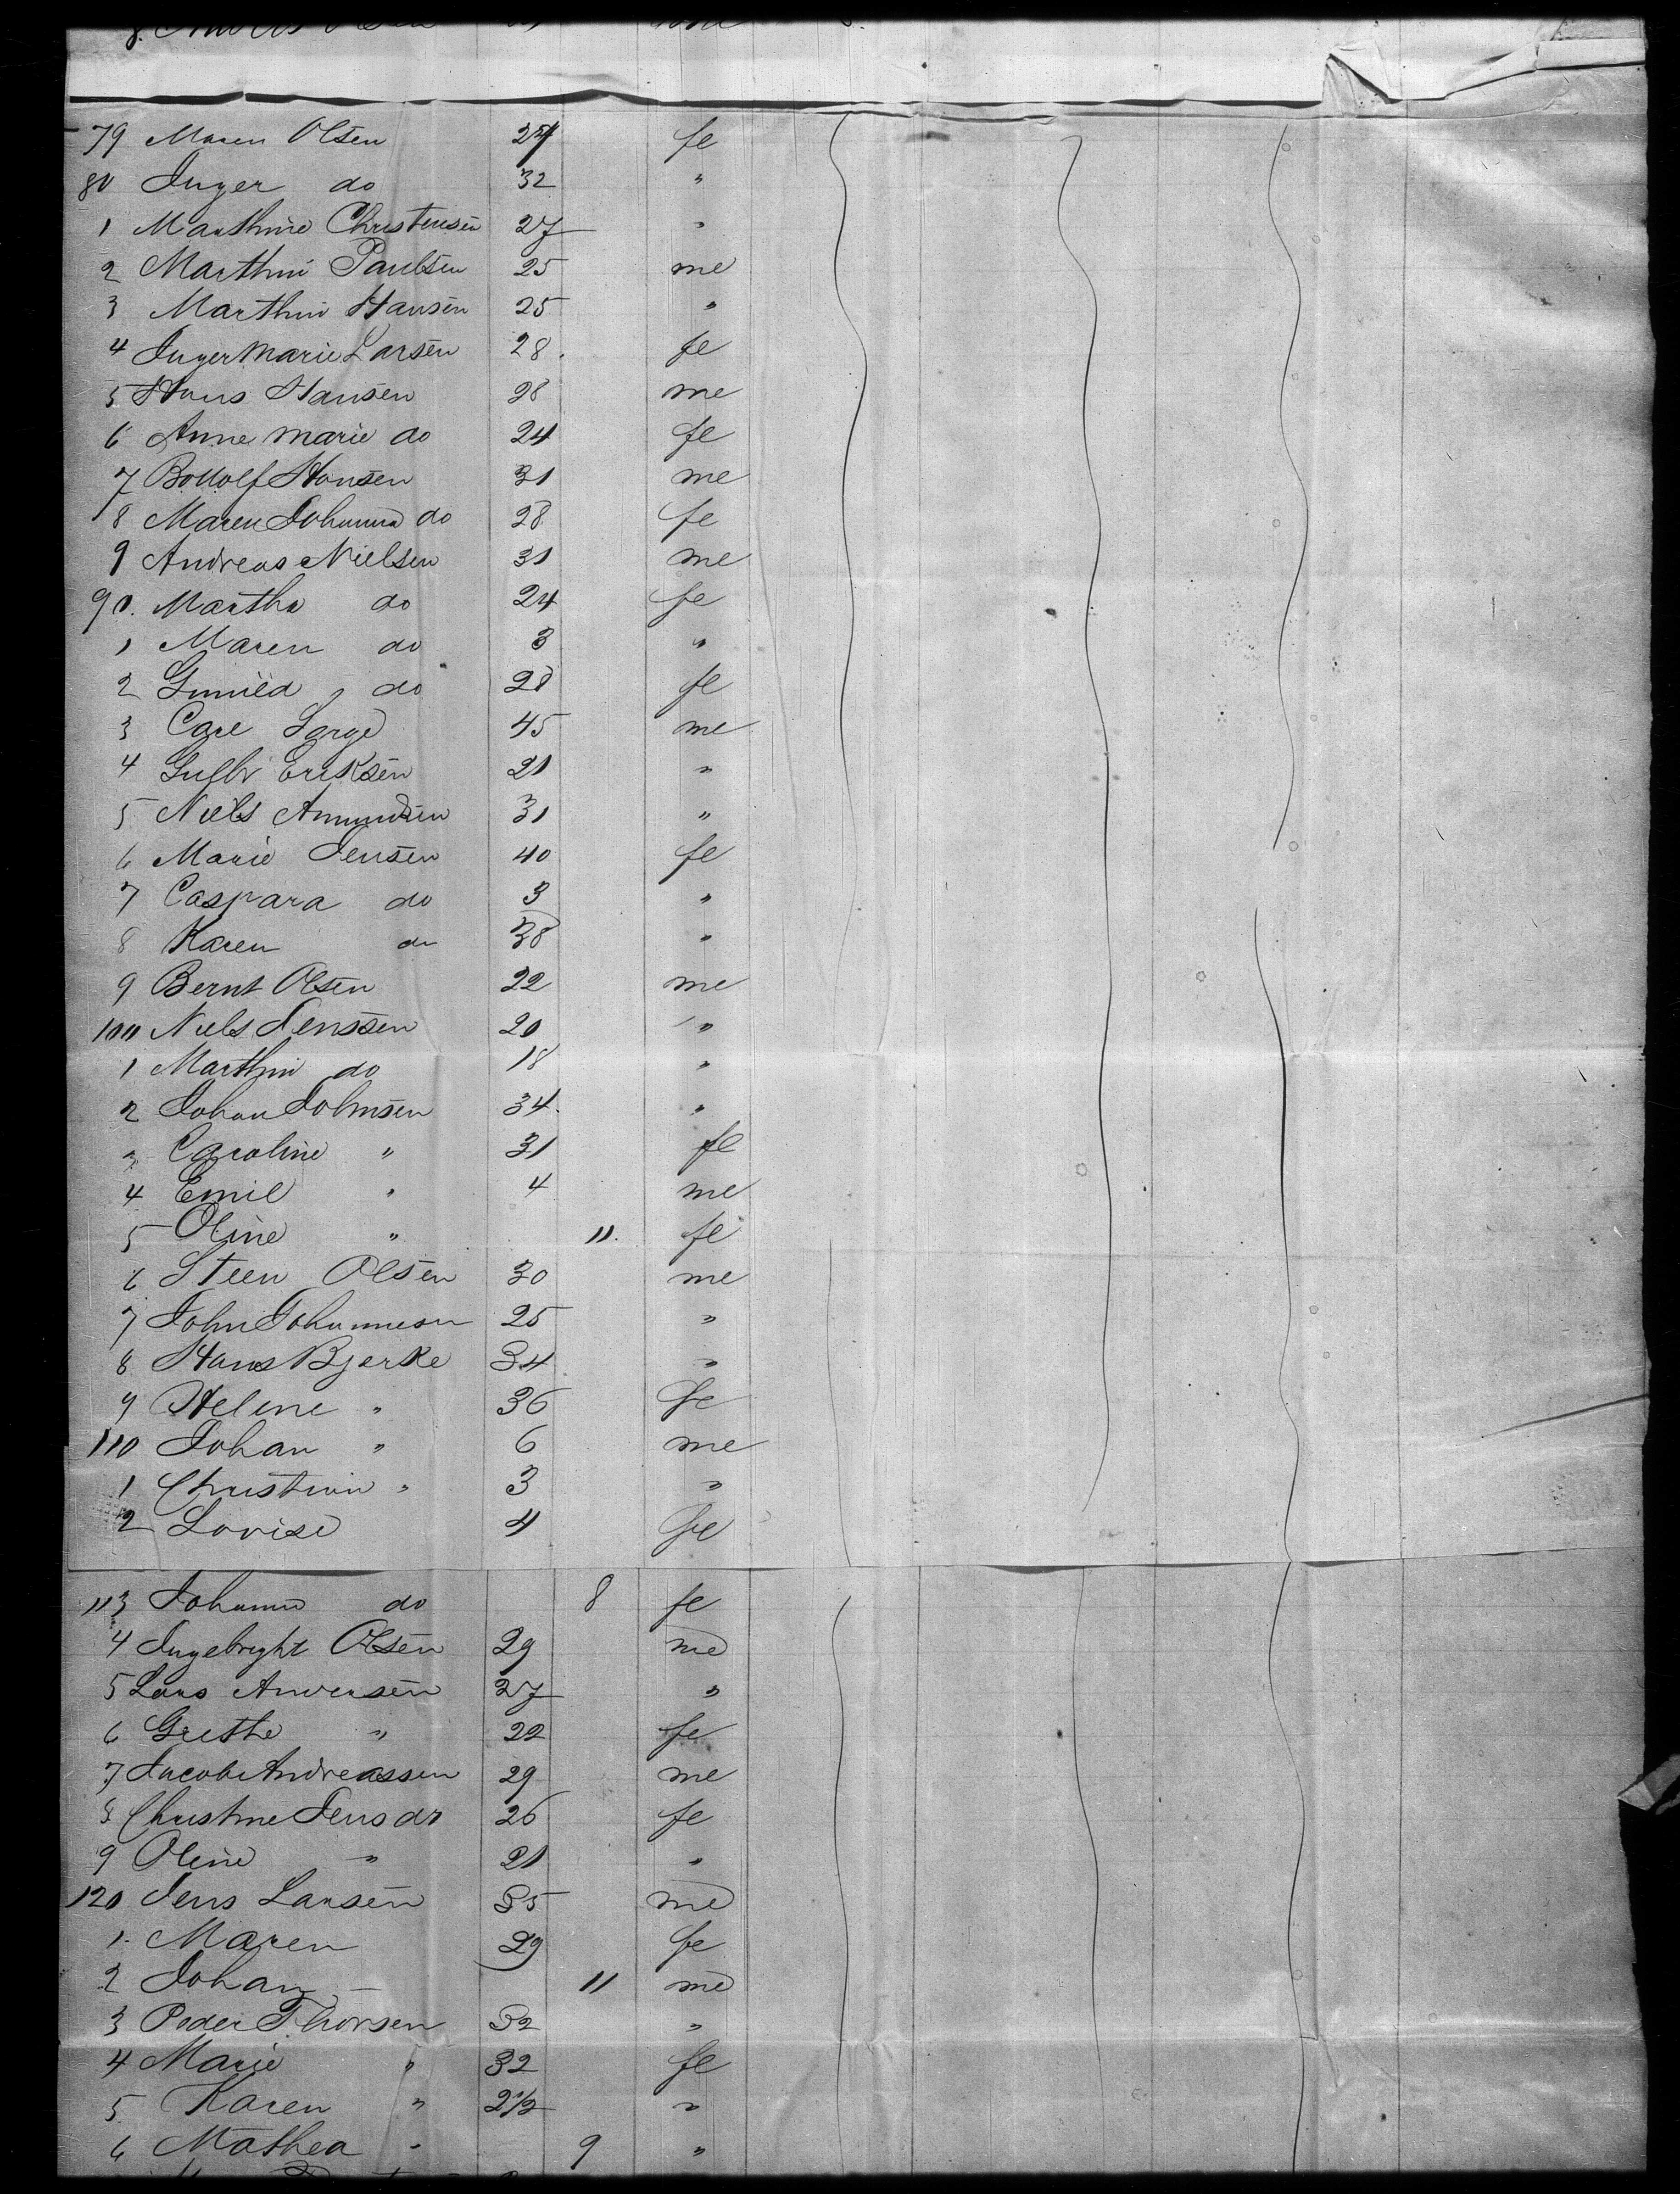 79 Maren Olsen 24 fe
80 Inger do 32 "
1 Marthine Christensen 27 "
2 Marthin Paulsen 25 me
3 Marthin Hansen 25 "
4 Inger Marie Larsen 28. fe
5 Hans Hansen 28 me
6 Anne Marie do 24 fe
7 Bottolf Hansen 31 me
8 Maren Johanna do 28 fe
9 Andreas Nielsen 31 me
90. Martha do 24 fe
1 Maren do 3 "
2 Gunild do 28 fe
3 Carl Lange 45 me
4 Gulbr Eriksen 21 "
5 Niels Amundsen 31 "
6 Marie Jensen 40 fe
7 Caspara do 3 "
8 Karen do 38 "
9 Bernt Olsen 22 me
100 Niels Jenssen 20 "
1 Marthin do 18 "
2 Johan Johnsen 34. "
3 Caroline " 31 fe
4 Emil " 4 me
5 Oline " 11. fe
6 Steen Olsen 30 me
7 John Johannesen 25 "
8 Hans Bjerke 34 "
9 Helene " 36 fe
110 Johan " 6 me
1 Christian " 3 "
2 Lovise 4 fe
113 Johanne do 8 fe
4 Ingebright Olsen 29 me
5 Lars Andersen 27 "
6 Grethe " 22 fe
7 Jacob Andreassen 29 me
8 Christine Jensdr 26 fe
9 Oline " 21 "
120 Jens Larsen 35 me
1. Maren 29 fe
2 Johan 11 me
3 Peder Thorsen 32 "
4 Marie " 32 fe
5 Karen " 2 1/2 "
6 Mathea " 9 "